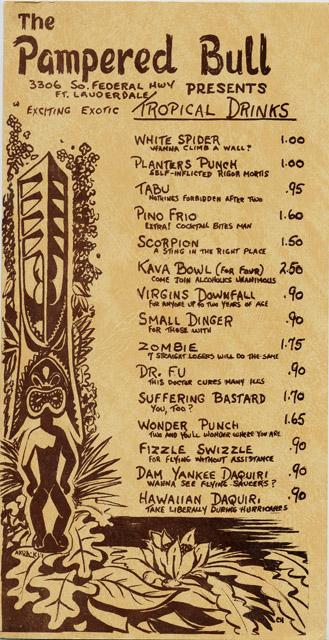 The
Pampered Bull
3306 So. FEDERAL HWY
FT. LAUDERDALE
PRESENTS
"EXCITING EXOTIC TROPICAL DRINKS
WHITE SPIDER 1.00
WANNA CLIMB A WALL?
PLANTERS PUNCH 1.00
SELF-INFLICTED RIGOR MORTIS
TABU .95
NOTHINGS FORBIDDEN AFTER TWO
PINO FRIO 1.60
EXTRA! COCKTAIL BITES MAN
SCORPION 1.50
A STING IN THE RIGHT PLACE
KAVA BOWL (FOR FOUR) 2.50
COME JOIN ALCOHOLICS UNANIMOUS
VIRGINS DOWNFALL .90
FOR ANYONE UP TO TWO YEARS OF AGE
SMALL DINGER .90
FOR THOSE WITH
ZOMBIE 1.75
7 STRAIGHT LOSERS WILL DO THE SAME
DR. FU .90
THIS DOCTOR CURES MANY ILLS
SUFFERING BASTARD 1.70
YOU, TOO?
WONDER PUNCH 1.65
TWO AND YOU'LL WONDER WHERE YOU ARE
FIZZLE SWIZZLE .90
FOR FLYING WITHOUT ASSISTANCE
DAM YANKEE DAQUIRI .90
WANNA SEE FLYING SAUCERS?
HAWAIIAN DAQUIRI .90
TAKE LIBERALLY DURING HURRICANES